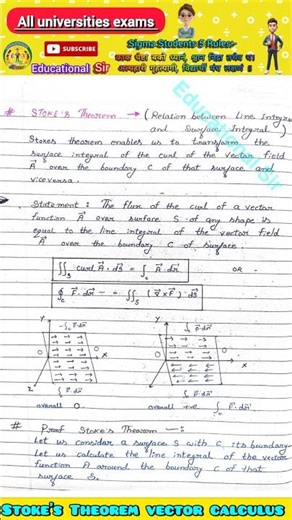 All universities exams
SUBSCRIBE
Educational Sir
Sigma Students 5 Rules:-
काक चेष्टा बको ध्यानं, श्वान निद्रा तथैव च।
अल्पहारी गृहत्यागी, विद्यार्थी पंच लक्षणं ॥
Educational Sir
# STOKE'S THEOREM → (Relation between Line Integral
and Surface Integral)
Stokes theorem enables us to transform the
surface integral of the curl of the vector field
A⃗ over the boundary C of that surface and
viceversa.
Statement : The flux of the curl of a vector
function A⃗ over surface S of any shape is
equal to the line integral of the vector field
A⃗ over the boundary C of surface.
∬S curl A⃗. ds⃗ = ∫c A⃗. dr⃗ OR -
∮c F⃗. dr⃗ - = ∬S (∇⃗ × F⃗). ds⃗
Y Y
-∫c F⃗.dr⃗ ∫c F⃗.dr⃗
0 0 X 0 0 X
Z ∫c F⃗.dr⃗ ∫c F⃗.dr⃗
overall 0 overall +ve ∫c F⃗.dr⃗
# Proof Stoke's Theorem —:
Let us consider a surface S with C, its boundary.
Let us calculate the line integral of the vector
function A around the boundary C of that
surface S.
STOKE'S THEOREM VECTOR CALCULUS